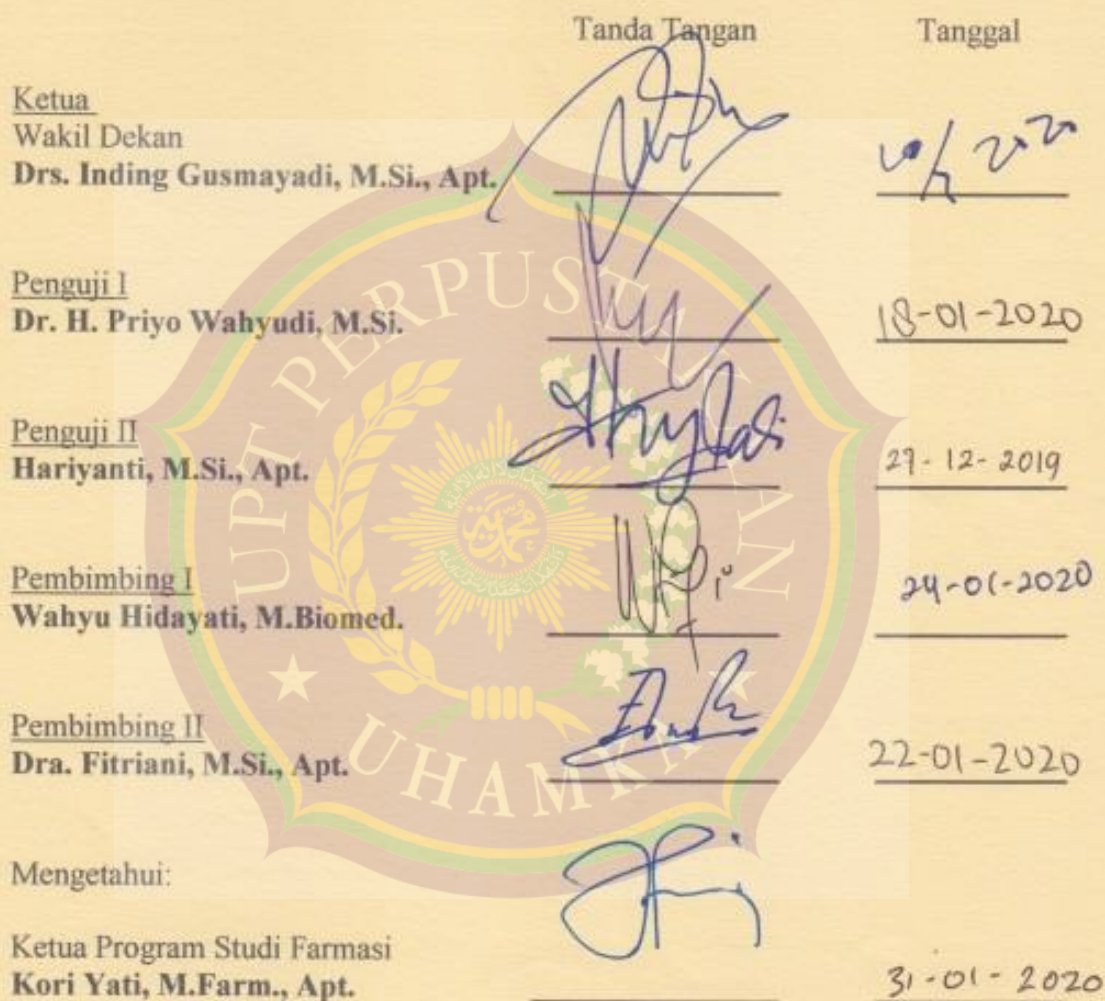 Tanda Tangan Tanggal
Ketua
Wakil Dekan
Drs. Inding Gusmayadi, M.Si., Apt.
Penguji I
Dr. H. Priyo Wahyudi, M.Si.
18-01-2020
Penguji II
Hariyanti, M.Si., Apt.
27-12-2019
Pembimbing I
Wahyu Hidayati, M.Biomed.
24-01-2020
Pembimbing II
Dra. Fitriani, M.Si., Apt.
22-01-2020
Mengetahui:
Ketua Program Studi Farmasi
Kori Yati, M.Farm., Apt.
31-01-2020
UPT PERPUSTAKAAN
UHAMKA